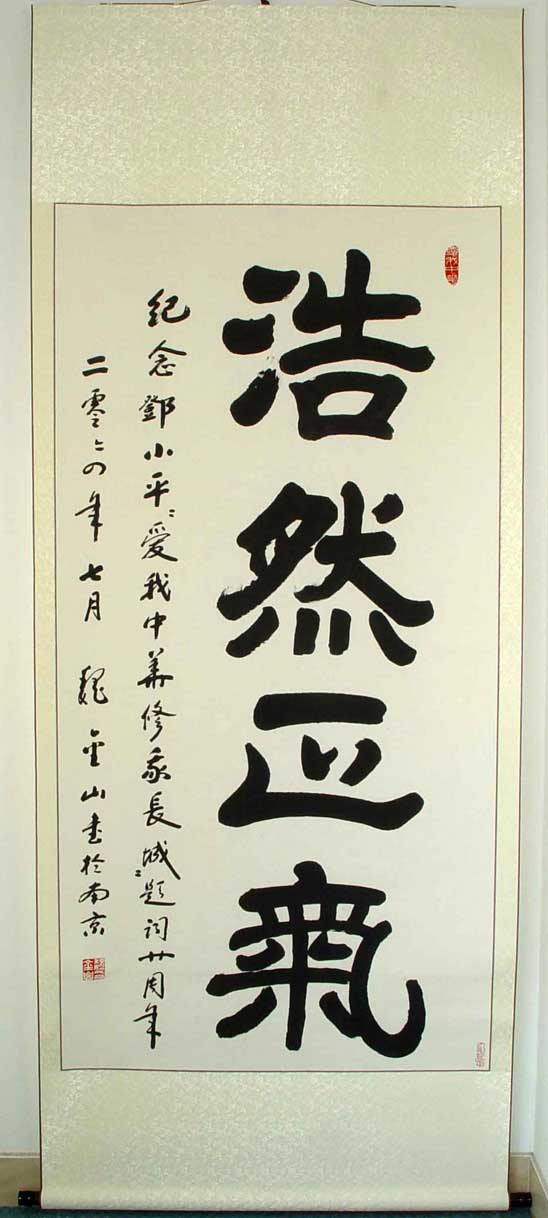 浩然正氣
紀念鄧小平“愛我中華修我長城”題詞廿周年
二零零四年七月 魏金山書於南京